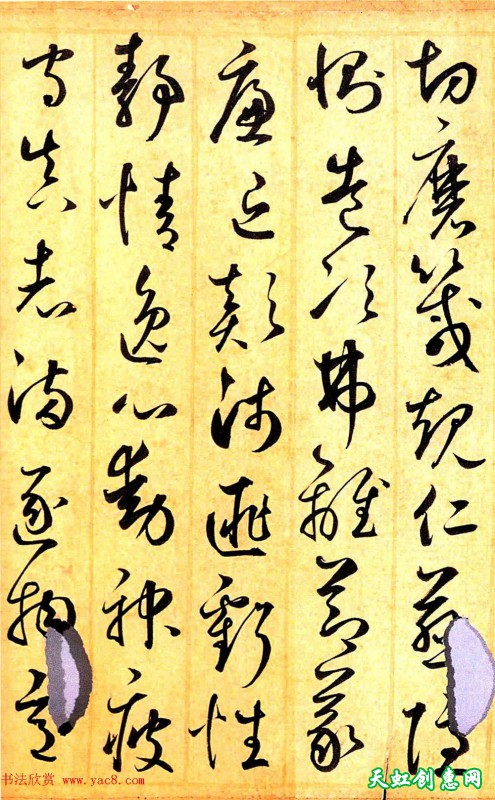 切磨箴規仁慈隱
惻造次弗離節義
廉退顛沛匪虧性
靜情逸心動神疲
守真志滿逐物意
书法欣赏 www.yac8.com
天虹创意网